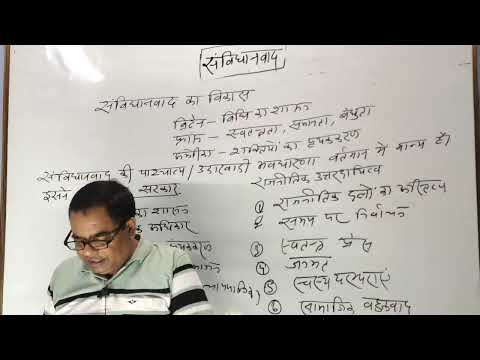 संविधानवाद
संविधानवाद का विकास
ब्रिटेन - विधि का शासन
फ्रांस - स्वतन्त्रता, समानता, बंधुता
अमेरिका - शक्तियों का पृथक्करण
संविधानवाद की पाश्चात्य / उदारवादी अवधारणा वर्तमान में मान्य है।
इसमें सरकार
राजनीतिक उत्तरदायित्व
का शासन
अधिकार
① राजनीतिक दलों का अस्तित्व
2 समय पर निर्वाचन
3 स्वतन्त्र प्रेस
4 जनमत
5 स्वस्थ परम्पराएं
6 सामाजिक बहुलवाद